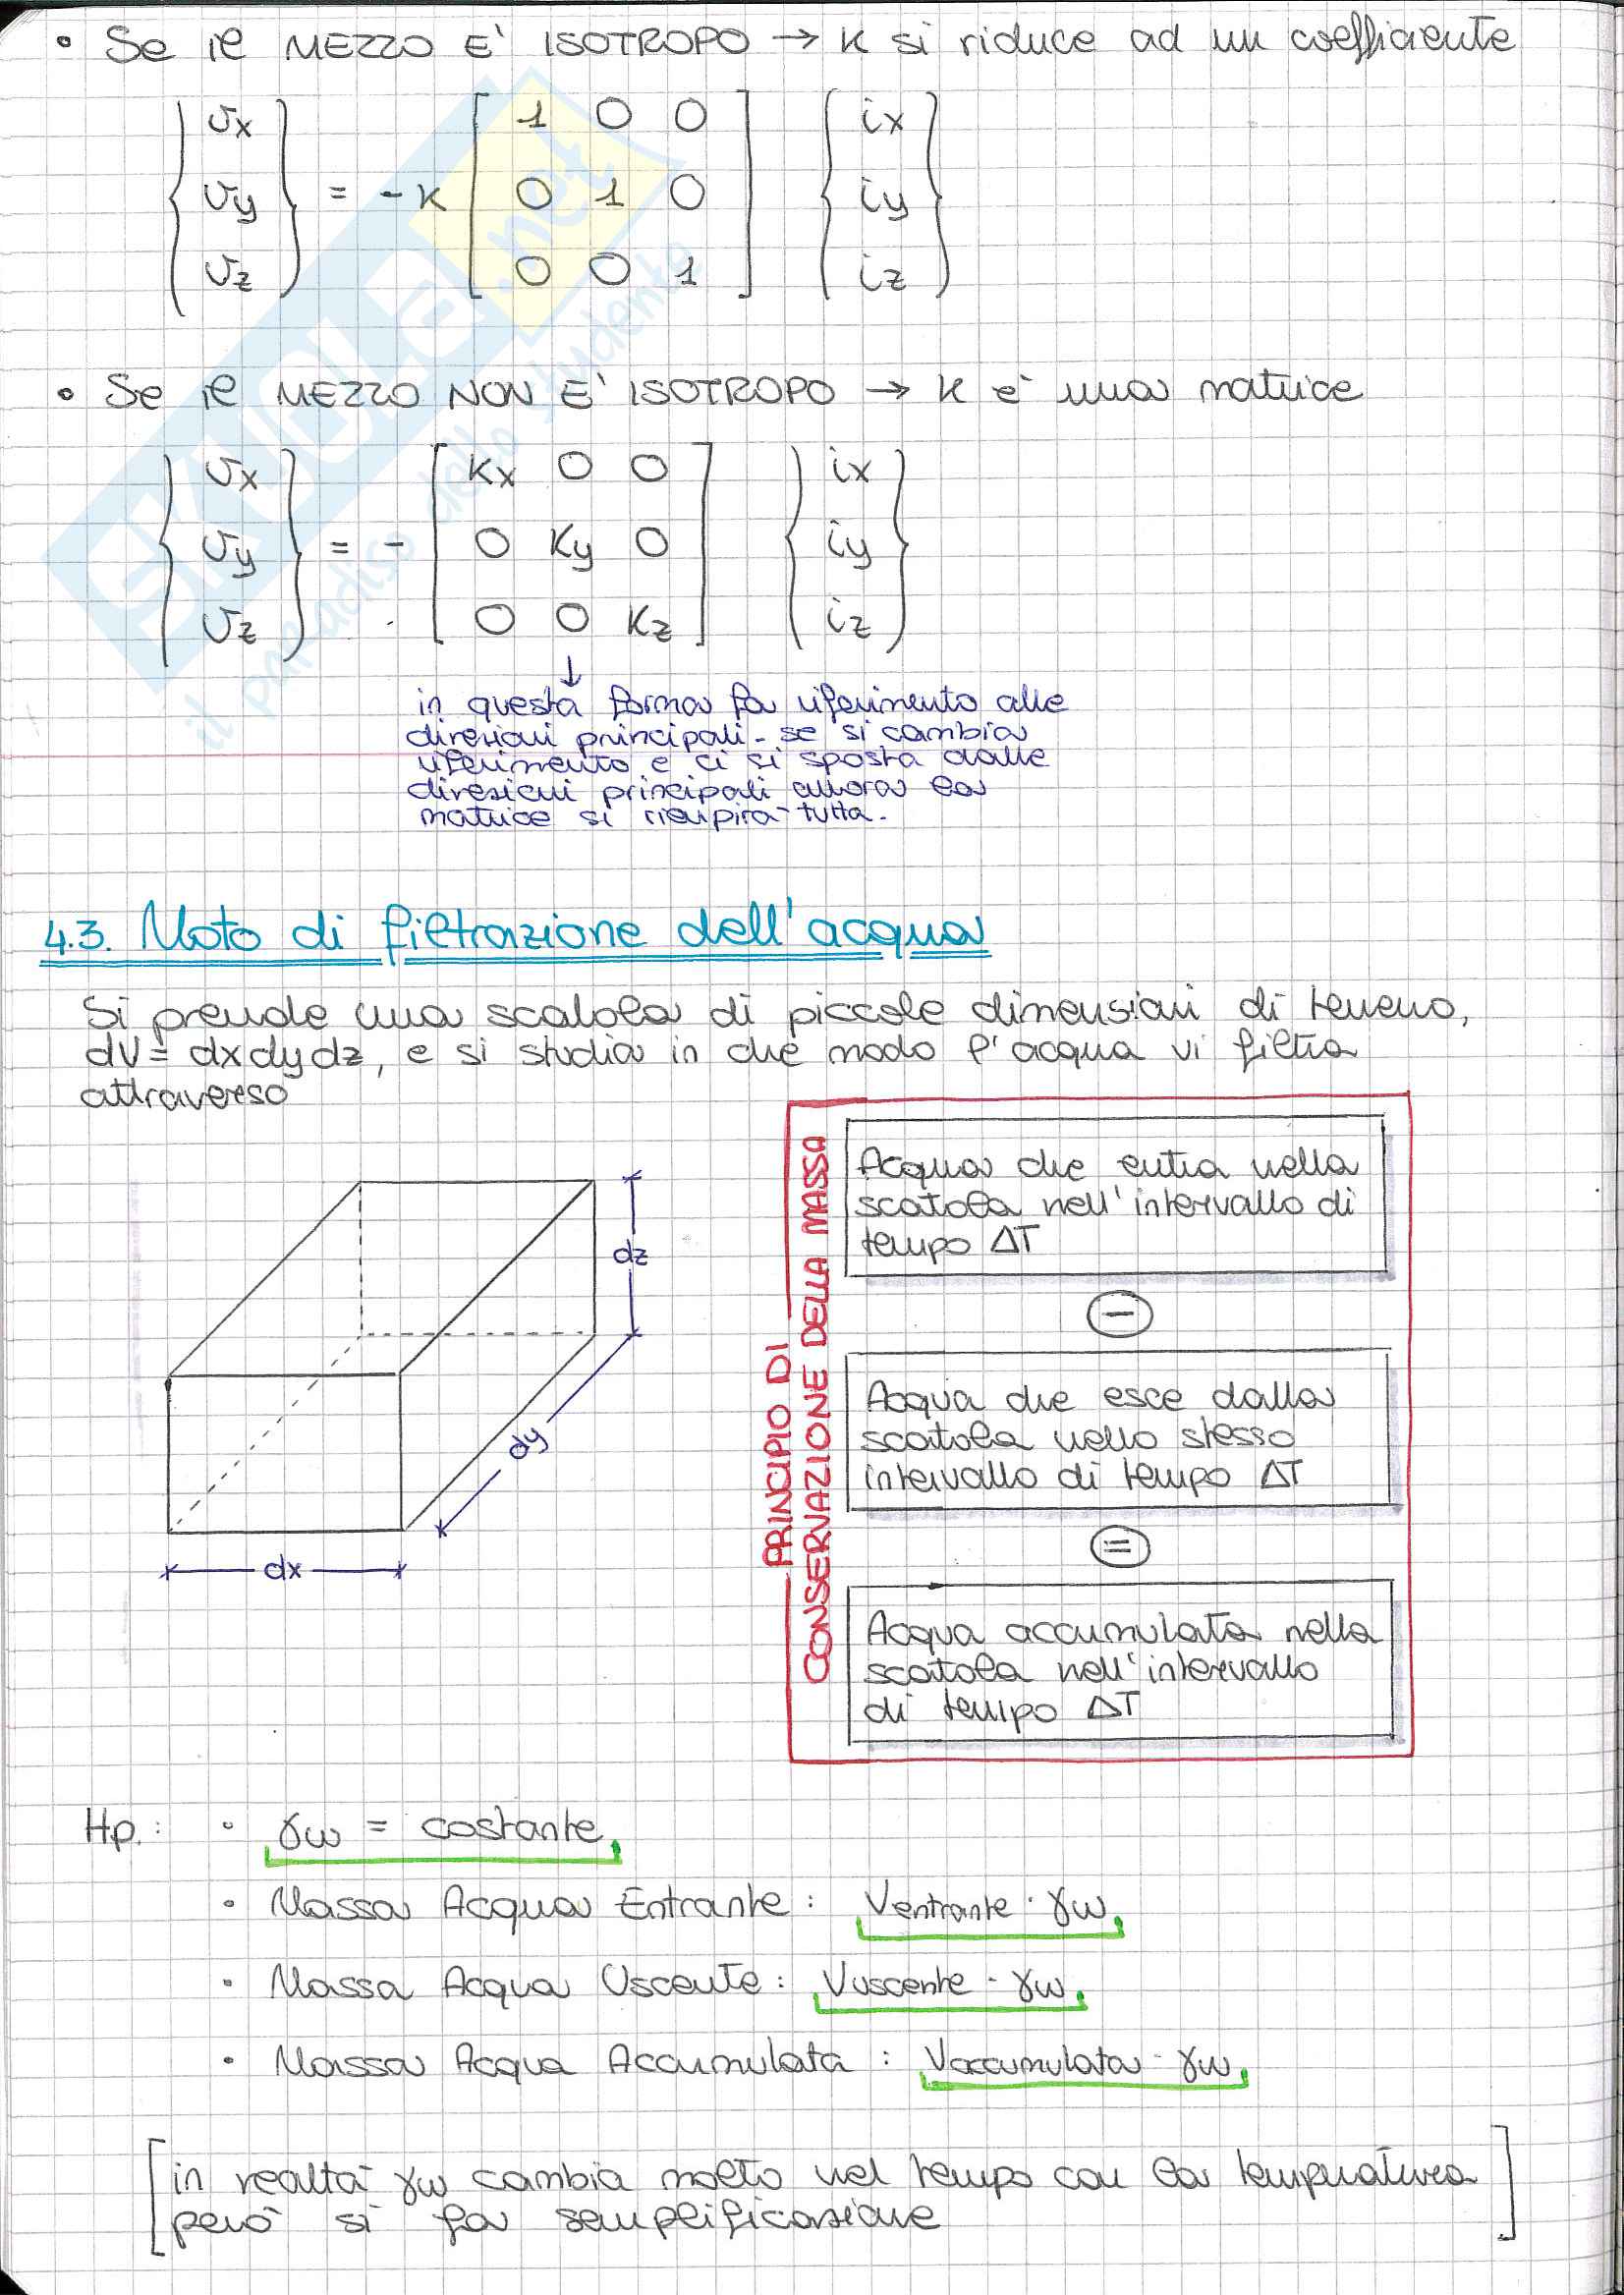 • Se il MEZZO E' ISOTROPO → K si riduce ad un coefficiente
vx
vy
vz
= -K
1 0 0
0 1 0
0 0 1
ix
iy
iz
• Se il MEZZO NON E' ISOTROPO → K è una matrice
vx
vy
vz
= -
Kx 0 0
0 Ky 0
0 0 Kz
ix
iy
iz
↓
in questa forma fa riferimento alle
direzioni principali - se si cambia
riferimento e ci si sposta dalle
direzioni principali allora la
matrice si riempirà tutta.
4.3. Moto di filtrazione dell'acqua
Si prende una scatola di piccole dimensioni di terreno,
dV = dxdydz, e si studia in che modo l'acqua vi filtra
attraverso
dz
dy
dx
PRINCIPIO DI
CONSERVAZIONE DELLA MASSA
Acqua che entra nella
scatola nell'intervallo di
tempo ΔT
-
Acqua che esce dalla
scatola nello stesso
intervallo di tempo ΔT
=
Acqua accumulata nella
scatola nell'intervallo
di tempo ΔT
Hp.: • γw = costante
• Massa Acqua Entrante: Ventrante · γw
• Massa Acqua Uscente: Vuscente · γw
• Massa Acqua Accumulata: Vaccumulata · γw
[in realtà γw cambia molto nel tempo con la temperatura
però si fa semplificazione]
SKUOLA.net
il paradiso dello studente